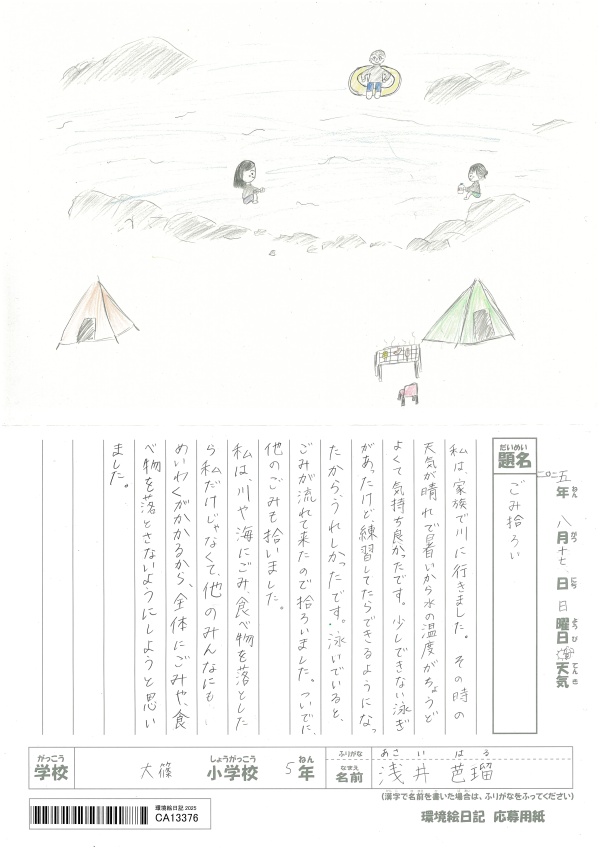 二〇二五年 八月十七日 日曜日 天気
ねん がつ にち ようび てんき
だいめい
題名
ごみ拾ろい
私は、家族で川に行きました。その時の
天気が晴れで暑いから水の温度がちょうど
よくて気持ち良かったです。少しできない泳ぎ
があったけど練習してたらできるようになっ
たから、うれしかったです。泳いでいると、
ごみが流れて来たので拾ろいました。ついでに
他のごみも拾いました。
私は、川や海にごみ、食べ物を落とした
ら私だけじゃなくて、他のみんなにも
めいわくがかかるから、全体にごみや、食
べ物を落とさないようにしようと思い
ました。
がっこう しょうがっこう ねん ふりがな あさい はる
学校 大篠 小学校 5年 なまえ 名前 浅井 芭瑠
(漢字で名前を書いた場合は、ふりがなをふってください)
環境絵日記 2025
CA13376
環境絵日記 応募用紙